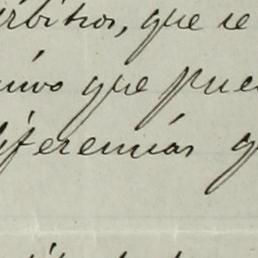 árbitros, que se
que pue
diferencias q